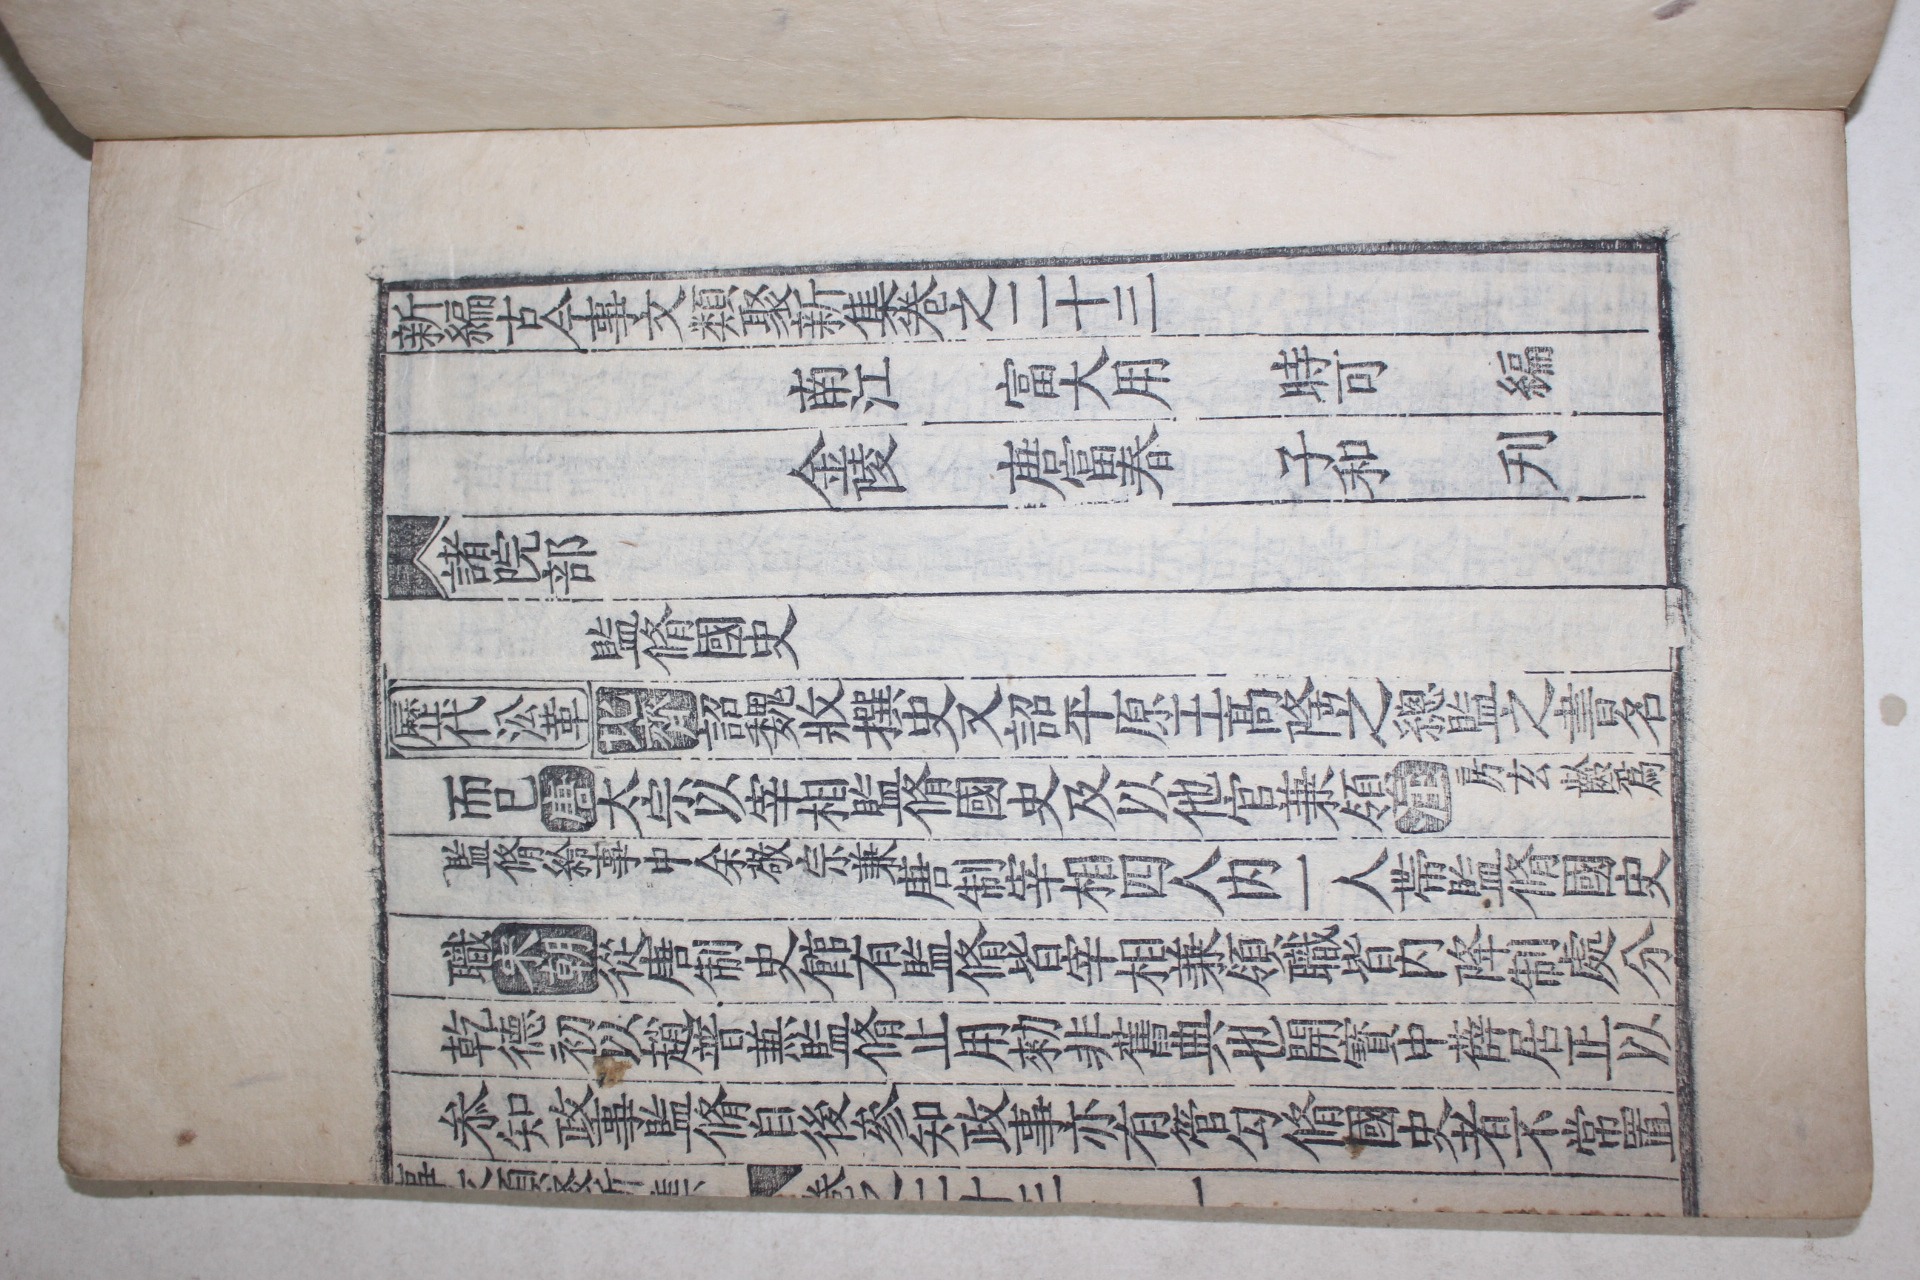 新編古今事文類聚新集卷之二十三
南江 富大用 時可 編
金陵 唐富春 子和 刋
諸院部
監脩國史
歷代沿革 北齊 詔魏收撰史又詔平原王高隆之總監之書名
而已 唐 太宗以宰相監脩國史及以他官兼領 註 房玄齡爲
監脩給事中余敬宗兼 唐制宰相四人内一人帶監脩國史
職 宋朝 從唐制史館有監脩皆宰相兼領職皆内降制處分
乾德初以趙普兼監脩止用勑非舊典也開寶中薛居正以
叅知政事監脩自後叅知政事亦有管勾脩國史者不常置
事文類聚新集 卷之二十三 一